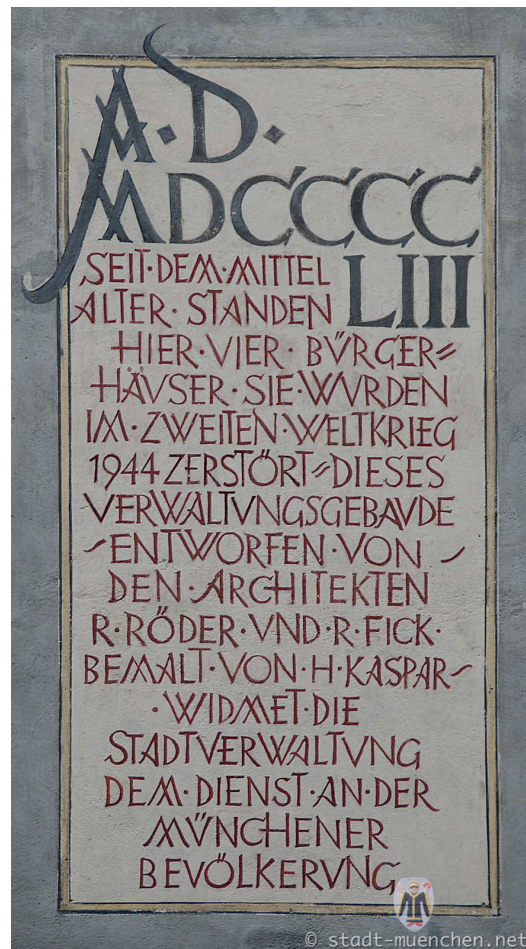 A·D·
MDCCCC
LIII
SEIT·DEM·MITTEL
ALTER·STANDEN
HIER·VIER·BÜRGER=
HÄVSER·SIE·WVRDEN
IM·ZWEITEN·WELTKRIEG
1944 ZERSTÖRT=DIESES
VERWALTVNGSGEBAVDE
~ENTWORFEN·VON~
DEN·ARCHITEKTEN
R·RÖDER·VND·R·FICK·
BEMALT·VON·H·KASPAR~
·WIDMET·DIE
STADTVERWALTVNG
DEM·DIENST·AN·DER
MÜNCHENER
BEVÖLKERVNG
© stadt-muenchen.net